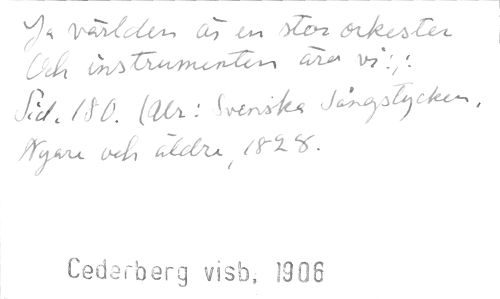 Ja världen är en stor orkester
Och instrumenten äro vi:,:
Sid. 180. (Ur: Svenska Sångstycken,
Nyare och äldre, 1828.
Cederberg visb, 1906